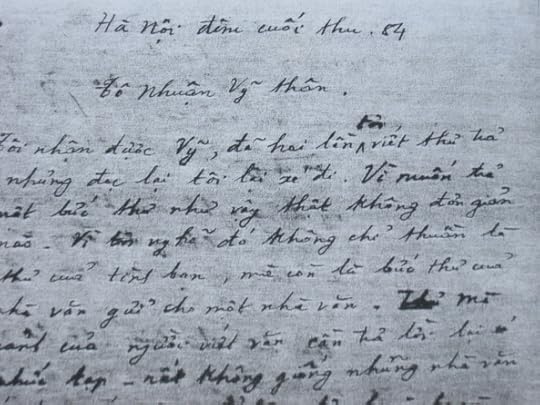 Hà Nội đêm cuối thu. 84
Tô Nhuận Vỹ thân.
Tôi nhận được Vỹ, đã hai lần tôi viết thư trả
nhưng đọc lại tôi lại xé đi. Vì muốn trả
một bức thư như vậy thật không đơn giản
nào. Vì nghĩ đó không chỉ thuần là
thư của tình bạn, mà còn là bức thư của
nhà văn gửi cho một nhà văn. Mà
của người viết văn cần trả lời lại
phức tạp - nó không giống những nhà văn